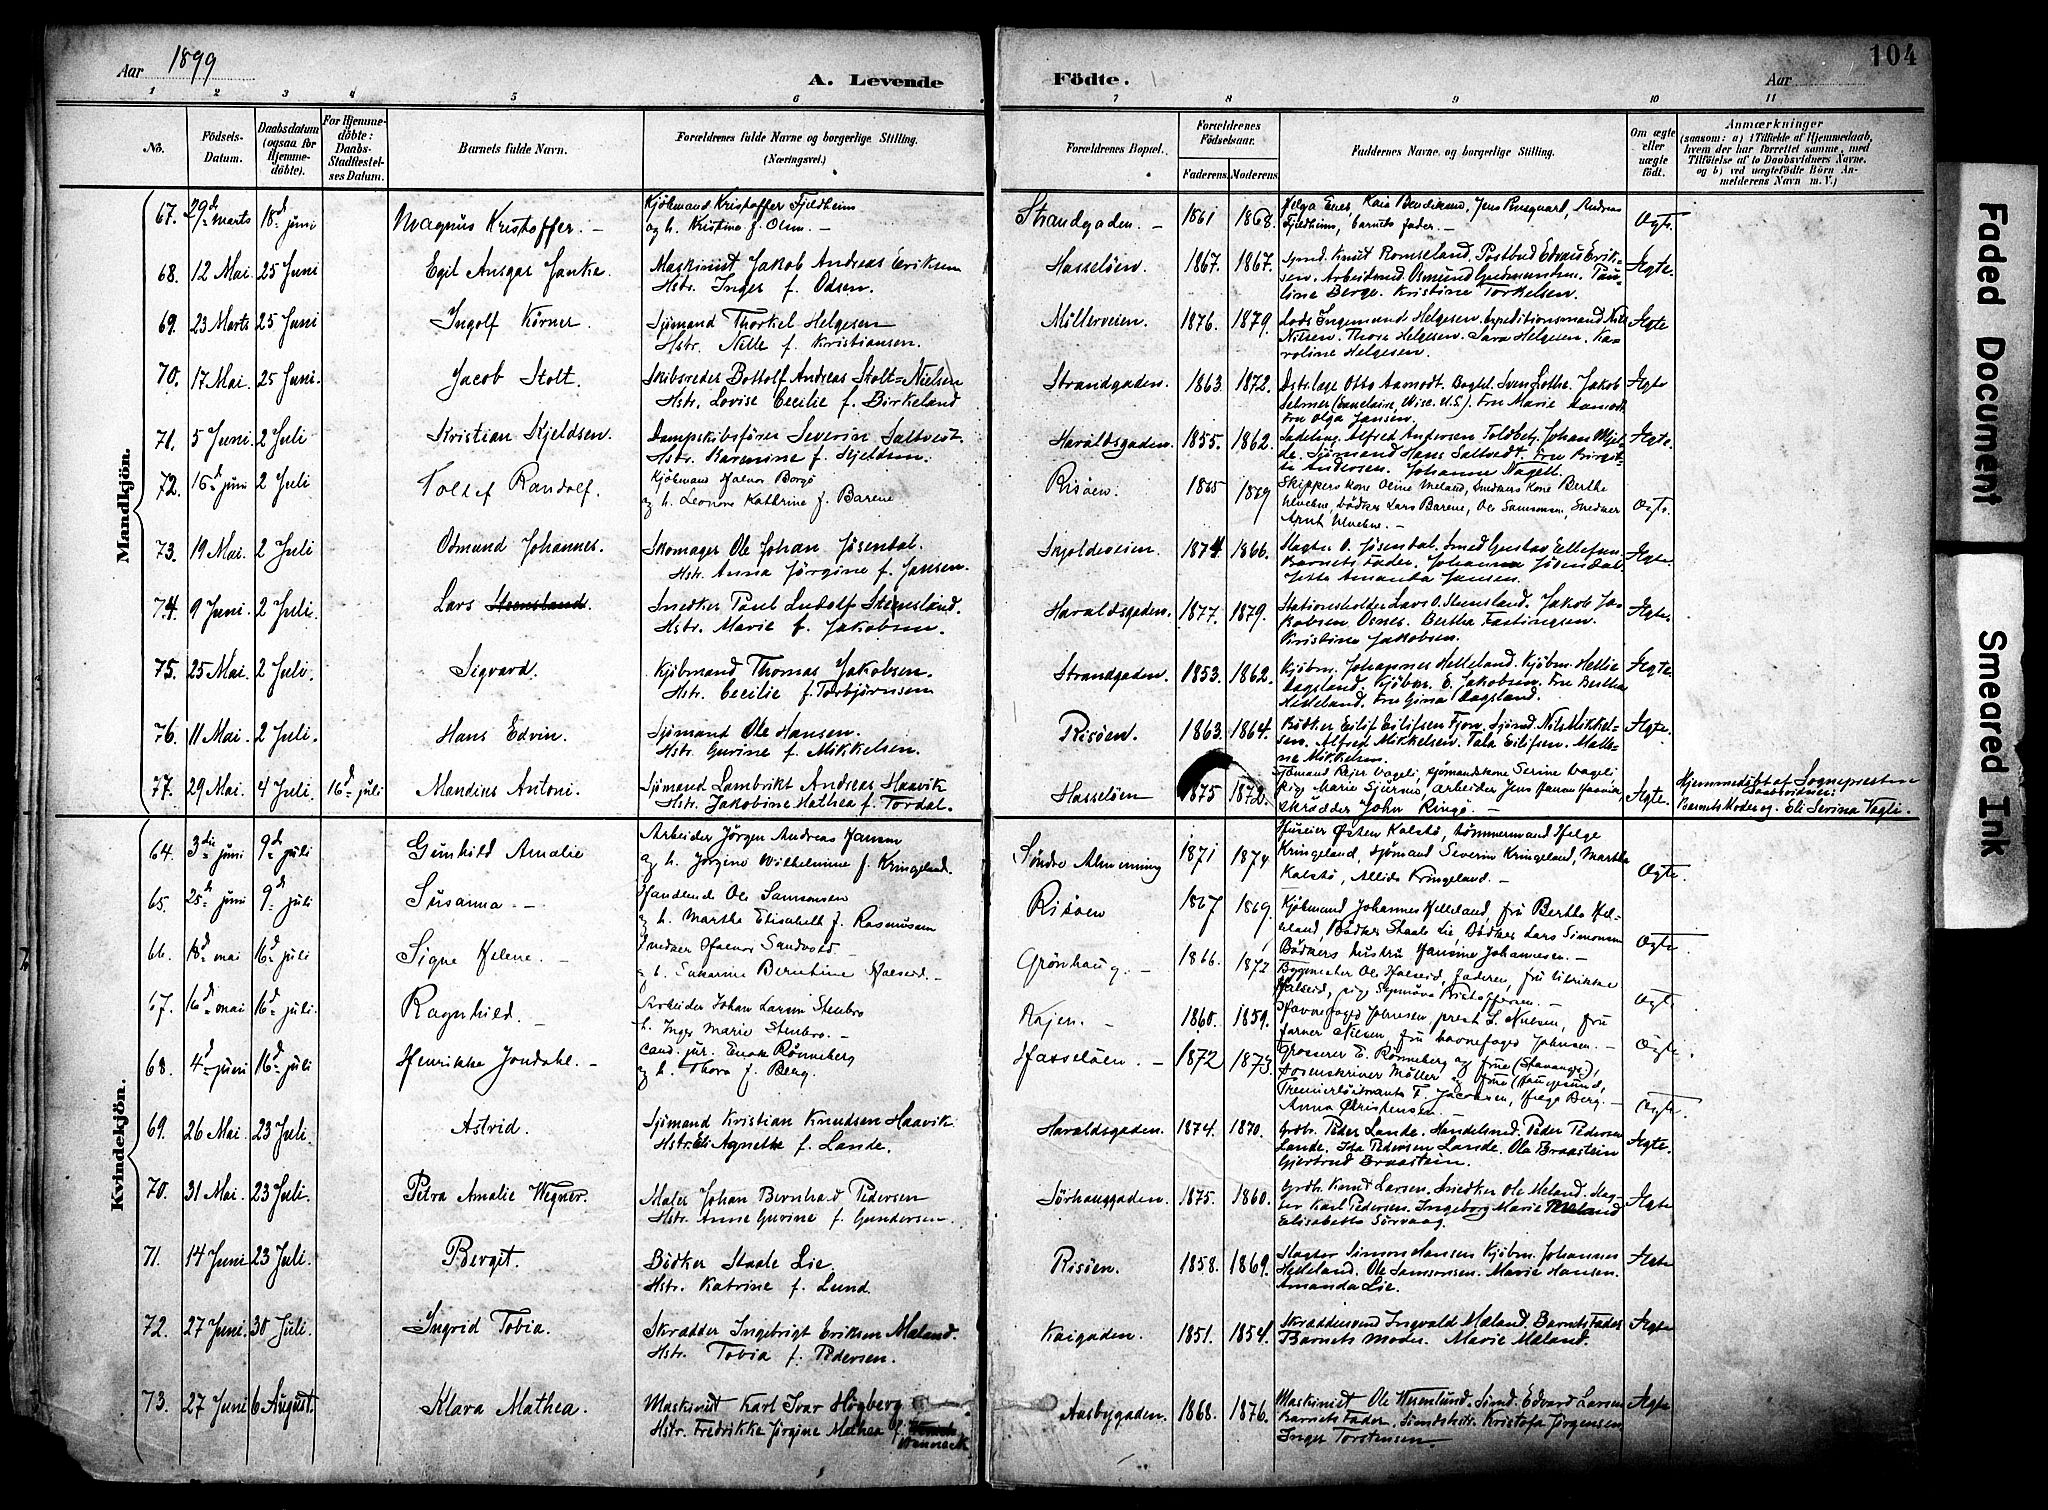 Aar 1899
A. Levende Födte.
Aar
104
1 2 3 4 5 6 7 8 9 10 11
No.
Födsels-Datum.
Daabsdatum (ogsaa for Hjemmedöbte).
For Hjemmedöbte: Daabs-Stadfæstelses Datum.
Barnets fulde Navn.
Forældrenes fulde Navne og borgerlige Stilling. (Næringsvei.)
Forældrenes Bopæl.
Forældrenes Födselsaar.
Faderens. Moderens
Faddernes Navne og borgerlige Stilling.
Om ægte eller uægte födt.
Anmærkninger
(saasom: a) i Tilfælde af Hjemmedaab, hvem der har forrettet samme, med Tilföielse af to Daabsvidners Navne, og b) ved uægtefödte Börn Anmelderens Navn m. V.)
Mandkjön.
67. 29d marts 18d juni Magnus Kristoffer. Kjöbmand Kristoffer Fjeldheim
og h. Kristine f. Olsen. Strandgaden. 1861 1868. Andreas
Fjeldheim, barnets fader. Ægte
68. 12 Mai 25 Juni Egil Ansgar Janke Maskinist Jakob Andreas Eriksen
Hstr. Inger f. Odsen. Hasselöen. 1867. 1867. Sjömd. Knut Romseland. Postbud Edvard Erik-
sen. Arbeidsmd. Osmund Gudmundsen. Pau-
line Berge. Kristine Torkelsen. Ægte.
69. 23 Marts 25 Juni Ingolf Körner. Sjömand Thorkel Helgesen
Hstr. Nille f. Kristiansen. Möllerveien. 1876. 1879. Lods Ingemund Helgesen. Expeditionsmand Nils
Nilsen. Thore Helgesen. Sara Helgesen. Ka-
roline Helgesen. Ægte
70. 17 Mai. 25 Juni. Jacob Stolt. Skibsreder Bottolf Andreas Stolt-Nielsen
Hstr. Lovise Cecilie f. Birkeland Strandgaden. 1863. 1872. Otto Aamodt. Jakob
Selmer (Eauclaire, Wisc. U.S.). Fru Marie Aamodt
Fru Olga Jansen. Ægte
71. 5 Juni. 2 Juli Kristian Kjeldsen. Dampskibsförer Severin Saltvedt
Hstr. Barmine f. Kjeldsen. Haraldsgaden. 1855. 1862. Alfred Andersen Toldbetj. Johan
Sjömand Hans Saltvedt. Fru Birgit-
te Andersen. Johanne Nagell. Ægte.
72. 16d juni 2 Juli Tollef Randolf. Kjöbmand Halvor Borgö
og h. Leonore Kathrine f. Barene Risöen. 1865 1869 Skippers kone Oline Meland, Snedkers Kone Berthe
Ulvebne, bödker Lars Barene, Ole Samsonsen, Snedker
Arnt Ulvebne. Ægte.
73. 19 Mai. 2 Juli Odmund Johannes. Skomager Ole Johan Jösendal.
Hstr. Anna Jörgine f. Jansen. Skjoldeveien. 1874 1866. Slagter O. Jösendal. Smed Gustav Ellefsen.
Barnets Fader. Johanna Jösendal
Amanda Jansen. Ægte.
74. 9 Juni. 2 Juli Lars Stensland. Snedker Paul Ludolf Stensland.
Hstr. Marie f. Jakobsen. Haraldsgaden. 1877. 1879. Stationsholder Lars O. Stensland. Jakob Ja-
kobsen Osnes. Bertha Fastingsen.
Kristine Jakobsen. Ægte.
75. 25 Mai. 2 Juli. Sigvard. Kjöbmand Thomas Jakobsen.
Hstr. Cecilie f. Torbjörnsen Strandgaden. 1853. 1862. Kjöbm. Johannes Helleland. Kjöbm. Hellie
Dagsland. Kjöbm. E. Jakobsen. Fru Bertha
Helleland. Fru Gina Dagsland. Ægte.
76. 11 Mai. 2 Juli. Hans Edvin. Sjömand Ole Hansen.
Hstr. Gurine f. Mikkelsen. Risöen. 1863. 1864. Bödker Eilif Eilifsen Fjon. Sjömd. Nils Mikkel-
sen. Alfred Mikkelsen. Tala Eilifsen. Malle-
ne Mikkelsen. Ægte.
77. 29 Mai. 4 Juli. 16d juli Mandius Antoni. Sjömand Lambrikt Andreas Haavik
Hstr. Jakobine Mathea f. Tordal. Hasselöen 1875 1872. Sjömand Reier Vageli, sjömandskone Serine Vageli,
pige Marie Sjursö, arbeider Jens
skrædder John Ringö. Ægte. Hjemmedöbt af Sognepresten
Daabsvidner:
Barnets Moder og Eli Serina Vagli.
Kvindekjön.
64. 3die juni 9d juli Gunhild Amalie Arbeider Jörgen Andreas Hansen
og h. Jörgine Wilhelmine f. Kringeland. Söndre Almenning 1871 1874 Huseier Östen Kalstö, tömmermand Helge
Kringeland, sjömand Severin Kringeland, Martha
Kalstö, Allida Kringeland. Ægte.
65. 25d juni 9d juli Susanna. Handlende Ole Samsonsen
og h. Marthe Elisabeth f. Rasmussen Risöen 1867 1869. Kjöbmand Johannes Helleland, fru Berthe Hel-
leland, Bödker Staale Lie Bödker Lars Simonsen
Bödkers hustru Hansine Johannesen. Ægte.
66. 18d mai 16d juli Signe Helene. Snedker Halvor Sandvold
og h. Sakarine Berntine Halseid. Grönhaug. 1866. 1872 Bygmester Ole Halseid, faderen, fru Ulrikke
Halseid, pige Synnöva Kristoffersen. Ægte.
67. 16d mai 16d juli. Ragnhild. Arbeider Johan Larsen Stenbro
h. Inger Marie Stenbro. Kajen. 1860. 1859. Havnefoged Johnsen, prest L. Nielsen, fru
Nielsen, fru havnefoged Johnsen. Ægte.
68. 4d juni 16d juli Henrikke Jondahl. Cand. jur. Enok Rönneberg
og h. Thora f. Berg. Hasselöen. 1872 1873. Grosserer E. Rönneberg og frue (Stavanger),
Sorenskriver Möller og frue (Haugesund,
Premierlöitnant F. Jacobsen, Helga Berg.
Anna Christensen. Ægte.
69. 26 Mai. 23 Juli. Astrid. Sjömand Kristian Knudsen Haavik
Hstr. Eli Agnethe f. Lande. Haraldsgaden. 1874. 1870. Grdbr. Peder Lande. Handelsmd. Peder Pedersen
Lande. Ida Pedersen Lande. Ole Braastein
Gjertrud Braastein. Ægte.
70. 31 Mai. 23 Juli. Petra Amalie Wegner. Maler Johan Bernhard Pedersen
Hstr. Anne Gurine f. Gundersen. Sörhauggaden. 1875. 1860. Grdb. Knud Larsen. Snedker Ole Meland. Ma-
ler Karl Pedersen. Ingeborg Marie Meland
Elisabetta Sörvaag. Ægte
71. 14 Juni 23 Juli. Bergit. Bödker Staale Lie.
Hstr. Katrine f. Lund. Risöen. 1858. 1869. Slagter Simon Hansen Kjöbm. Johannes
Helleland. Ole Samsonsen. Marie Hansen.
Amanda Lie. Ægte
72. 27 Juni. 30 Juli. Ingrid Tobia. Skrædder Ingebrigt Eriksen Mæland.
Hstr. Tobia f. Pedersen. Kaigaden. 1851. 1854. Skræddersvend Ingvald Mæland. Barnets Fader
Barnets Moder. Marie Mæland. Ægte
73. 27 Juni 6 August. Klara Mathea. Maskinist Karl Ivar Högberg
Hstr. Fredrikke Jörgine Mathea f.
Wenneck Aasbygaden. 1868. 1876. Maskinist Ole Wesenlund. Sömd. Edvard Larsen
Barnets Fader. Kristofa Jörgensen
Inger Torstensen. Ægte
Faded Document
Smeared Ink